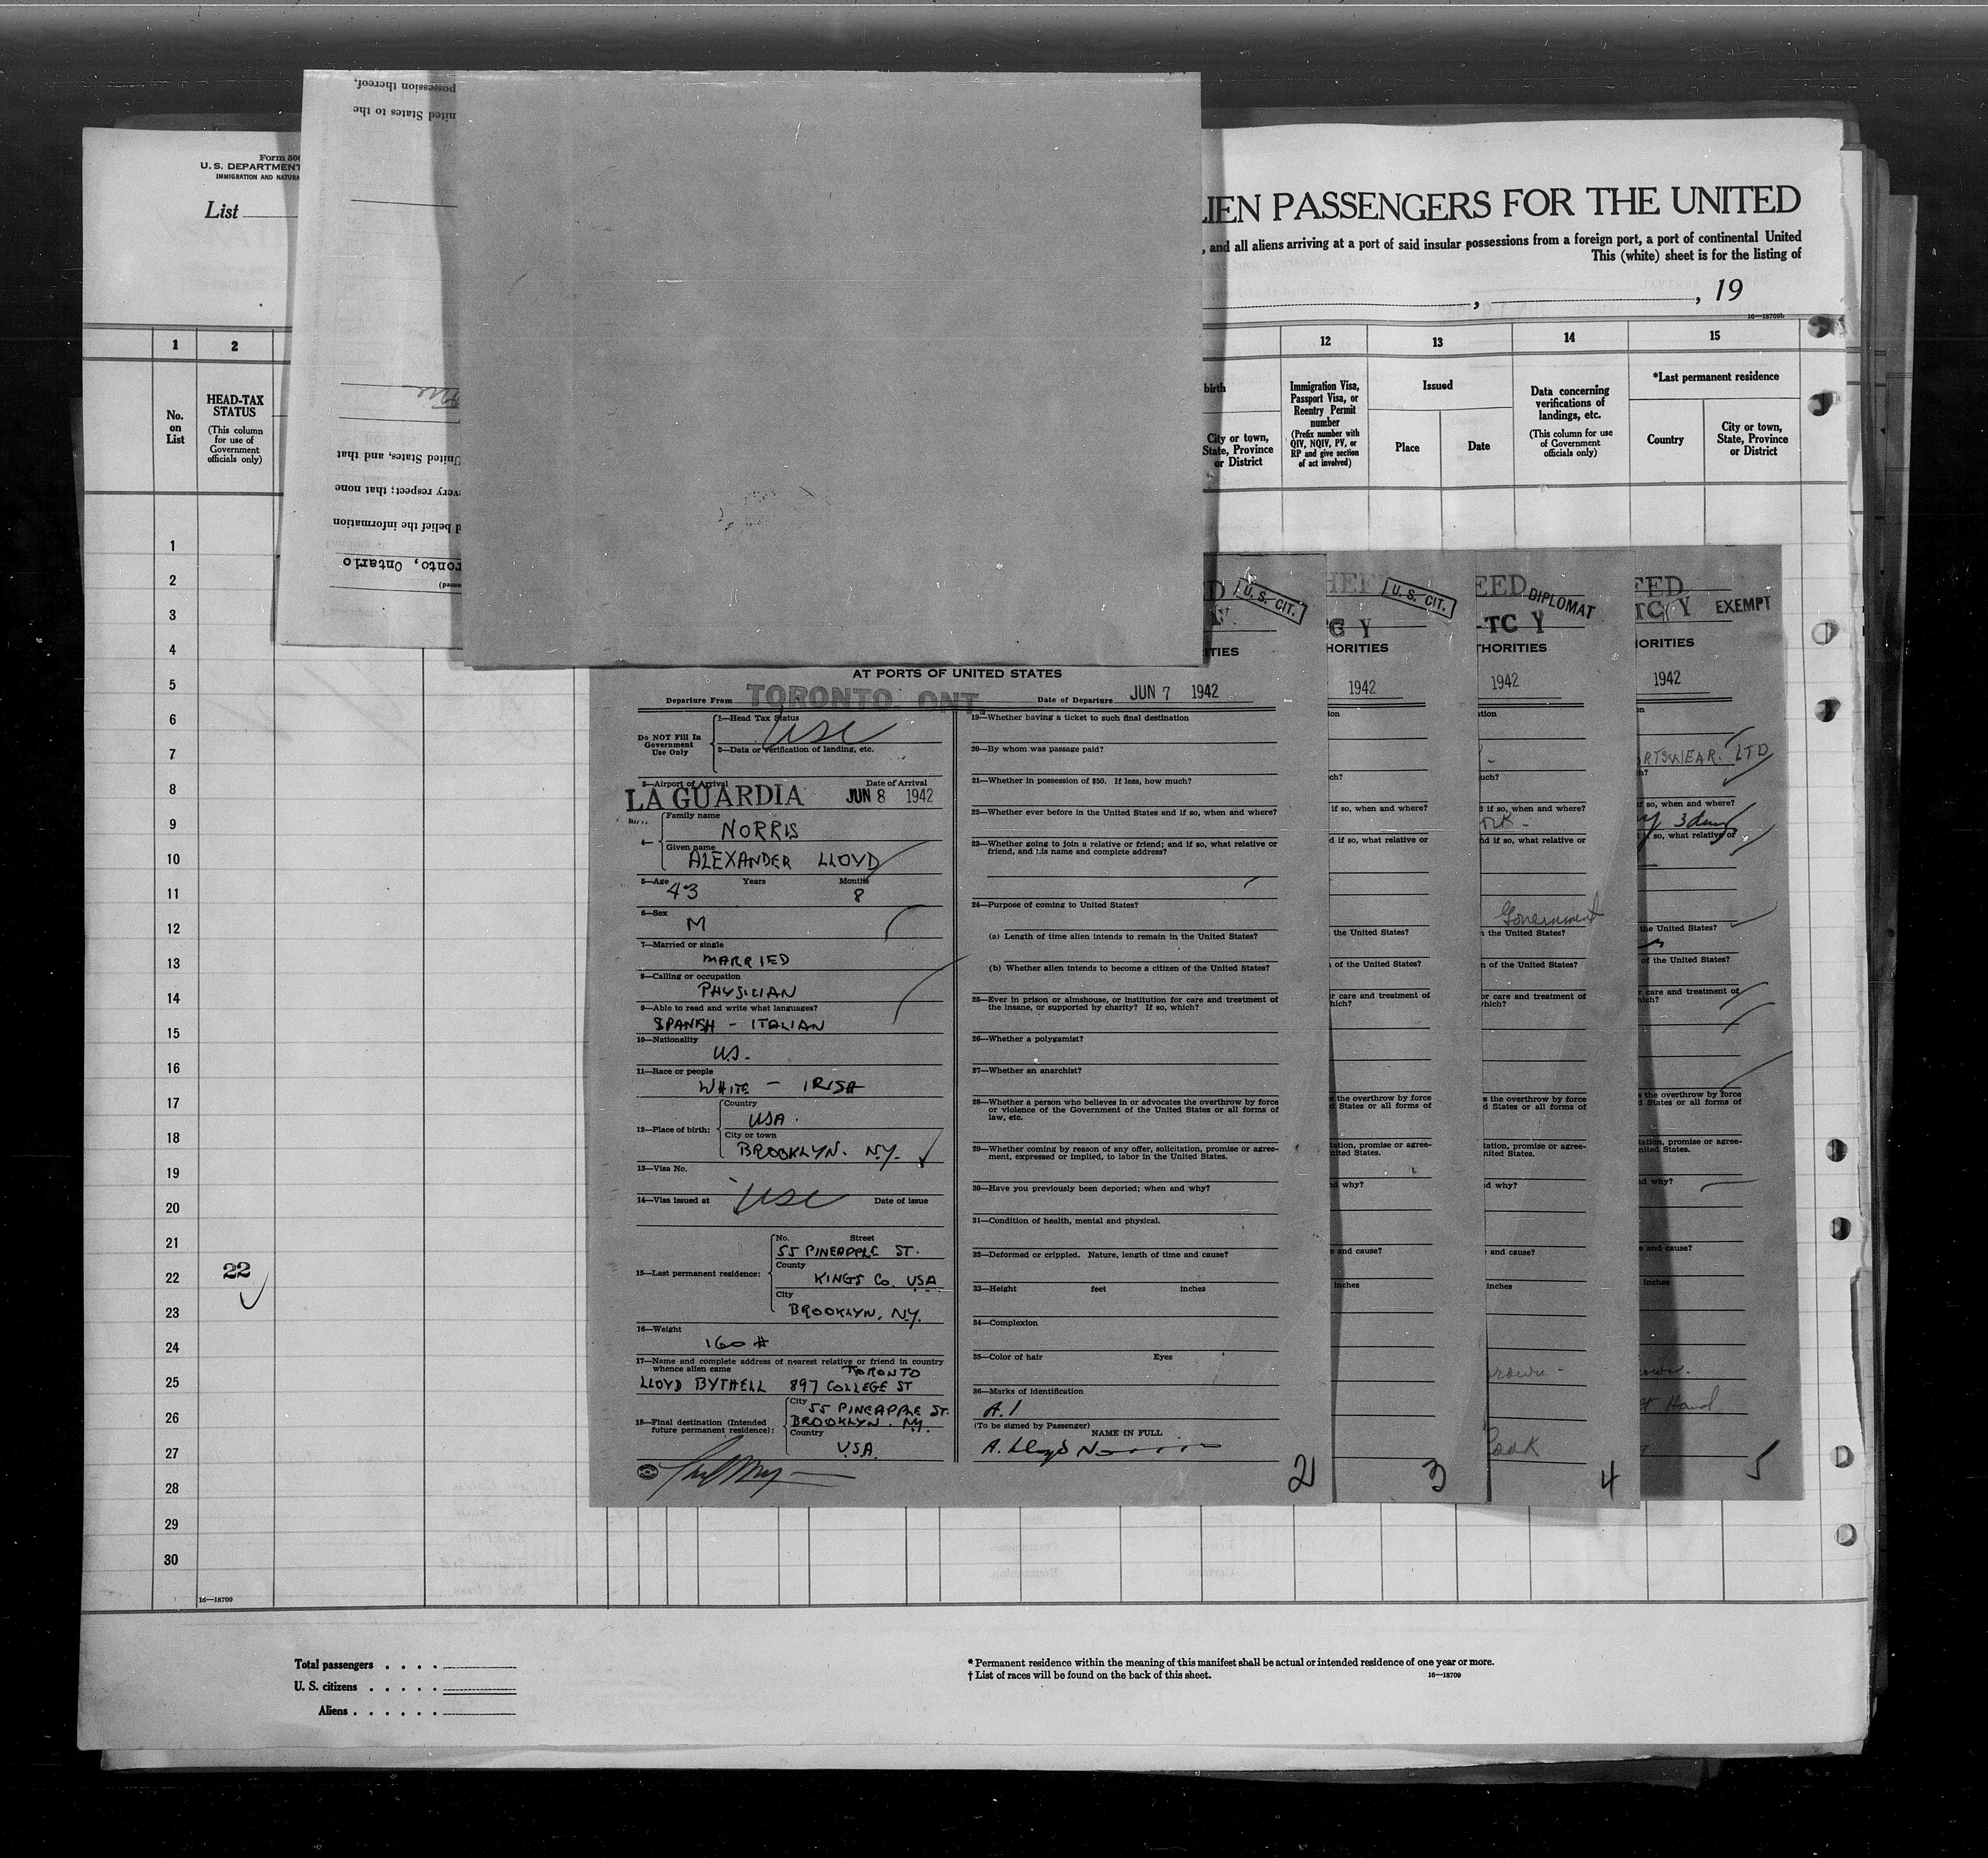 possession thereof,
nited States to the
United States, and that
very respect; that none
d belief the information
ronto, Ontario
Form 500
U. S. DEPARTMENT
IMMIGRATION AND NATURA
List
LIEN PASSENGERS FOR THE UNITED
, and all aliens arriving at a port of said insular possessions from a foreign port, a port of continental United
This (white) sheet is for the listing of
, , 19
16—18709b
1 2 12 13 14 15
No. on List
HEAD-TAX STATUS
(This column for use of Government officials only)
birth
City or town, State, Province or District
Immigration Visa, Passport Visa, or Reentry Permit number
(Prefix number with QIV, NQIV, PV, or RP and give section of act involved)
Issued
Place
Date
Data concerning verifications of landings, etc.
(This column for use of Government officials only)
*Last permanent residence
Country
City or town, State, Province or District
1
2
3
4
5
6
7
8
9
10
11
12
13
14
15
16
17
18
19
20
21
22 22
23
24
25
26
27
28
29
30
16—18709
AT PORTS OF UNITED STATES
Departure From TORONTO, ONT. Date of Departure JUN 7 1942
Do NOT Fill In Government Use Only
1—Head Tax Status USC
2—Data or verification of landing, etc.
3—Airport of Arrival Date of Arrival
LA GUARDIA JUN 8 1942
Family name
NORRIS
Given name
ALEXANDER LLOYD
5—Age 43 Years Months 8
6—Sex
M
7—Married or single
MARRIED
8—Calling or occupation
PHYSICIAN
9—Able to read and write what languages?
SPANISH - ITALIAN
10—Nationality
U.S.
11—Race or people
WHITE - IRISH
12—Place of birth:
Country
USA.
City or town
BROOKLYN. N.Y.
13—Visa No.
14—Visa issued at USC Date of issue
15—Last permanent residence:
No. Street
55 PINEAPPLE ST.
County
KINGS CO. USA
City
BROOKLYN, N.Y.
16—Weight
160 #
17—Name and complete address of nearest relative or friend in country
whence alien came TORONTO
LLOYD BYTHELL 897 COLLEGE ST
18—Final destination (Intended future permanent residence):
City 55 PINEAPPLE ST.
BROOKLYN. N.Y.
Country
USA.
19—Whether having a ticket to such final destination
20—By whom was passage paid?
21—Whether in possession of $50. If less, how much?
22—Whether ever before in the United States and if so, when and where?
23—Whether going to join a relative or friend; and if so, what relative or
friend, and his name and complete address?
24—Purpose of coming to United States?
(a) Length of time alien intends to remain in the United States?
(b) Whether alien intends to become a citizen of the United States?
25—Ever in prison or almshouse, or institution for care and treatment of
the insane, or supported by charity? If so, which?
26—Whether a polygamist?
27—Whether an anarchist?
28—Whether a person who believes in or advocates the overthrow by force
or violence of the Government of the United States or all forms of
law, etc.
29—Whether coming by reason of any offer, solicitation, promise or agree-
ment, expressed or implied, to labor in the United States.
30—Have you previously been deported; when and why?
31—Condition of health, mental and physical.
32—Deformed or crippled. Nature, length of time and cause?
33—Height feet inches
34—Complexion
35—Color of hair Eyes
36—Marks of identification
A.1
(To be signed by Passenger)
NAME IN FULL
A. Lloyd Norris
2
U. S. CIT.
ITIES
HEF
U. S. CIT.
Y
HORITIES
1942
if so, when and where?
d if so, what relative or
the United States?
of the United States?
r care and treatment of
hich?
s the overthrow by force
d States or all forms of
tation, promise or agree-
nited States.
d why?
e and cause?
inches
3
EED
DIPLOMAT
-TC Y
THORITIES
1942
uch?
d if so, when and where?
nd if so, what relative or
Government
n the United States?
n of the United States?
or care and treatment of
hich?
s the overthrow by force
d States or all forms of
tation, promise or agree-
nited States.
d why?
and cause?
inches
rown -
Cook
4
FED
TC Y
EXEMPT
HORITIES
1942
RTSWEAR. LTD
if so, when and where?
3 days
if so, what relative or
the United States?
of the United States?
r care and treatment of
hich?
the overthrow by force
d States or all forms of
tation, promise or agree-
nited States.
d why?
e and cause?
inches
own.
Hand
5
Total passengers . . . .
U. S. citizens . . . . .
Aliens . . . . . .
* Permanent residence within the meaning of this manifest shall be actual or intended residence of one year or more.
† List of races will be found on the back of this sheet.
16—18709